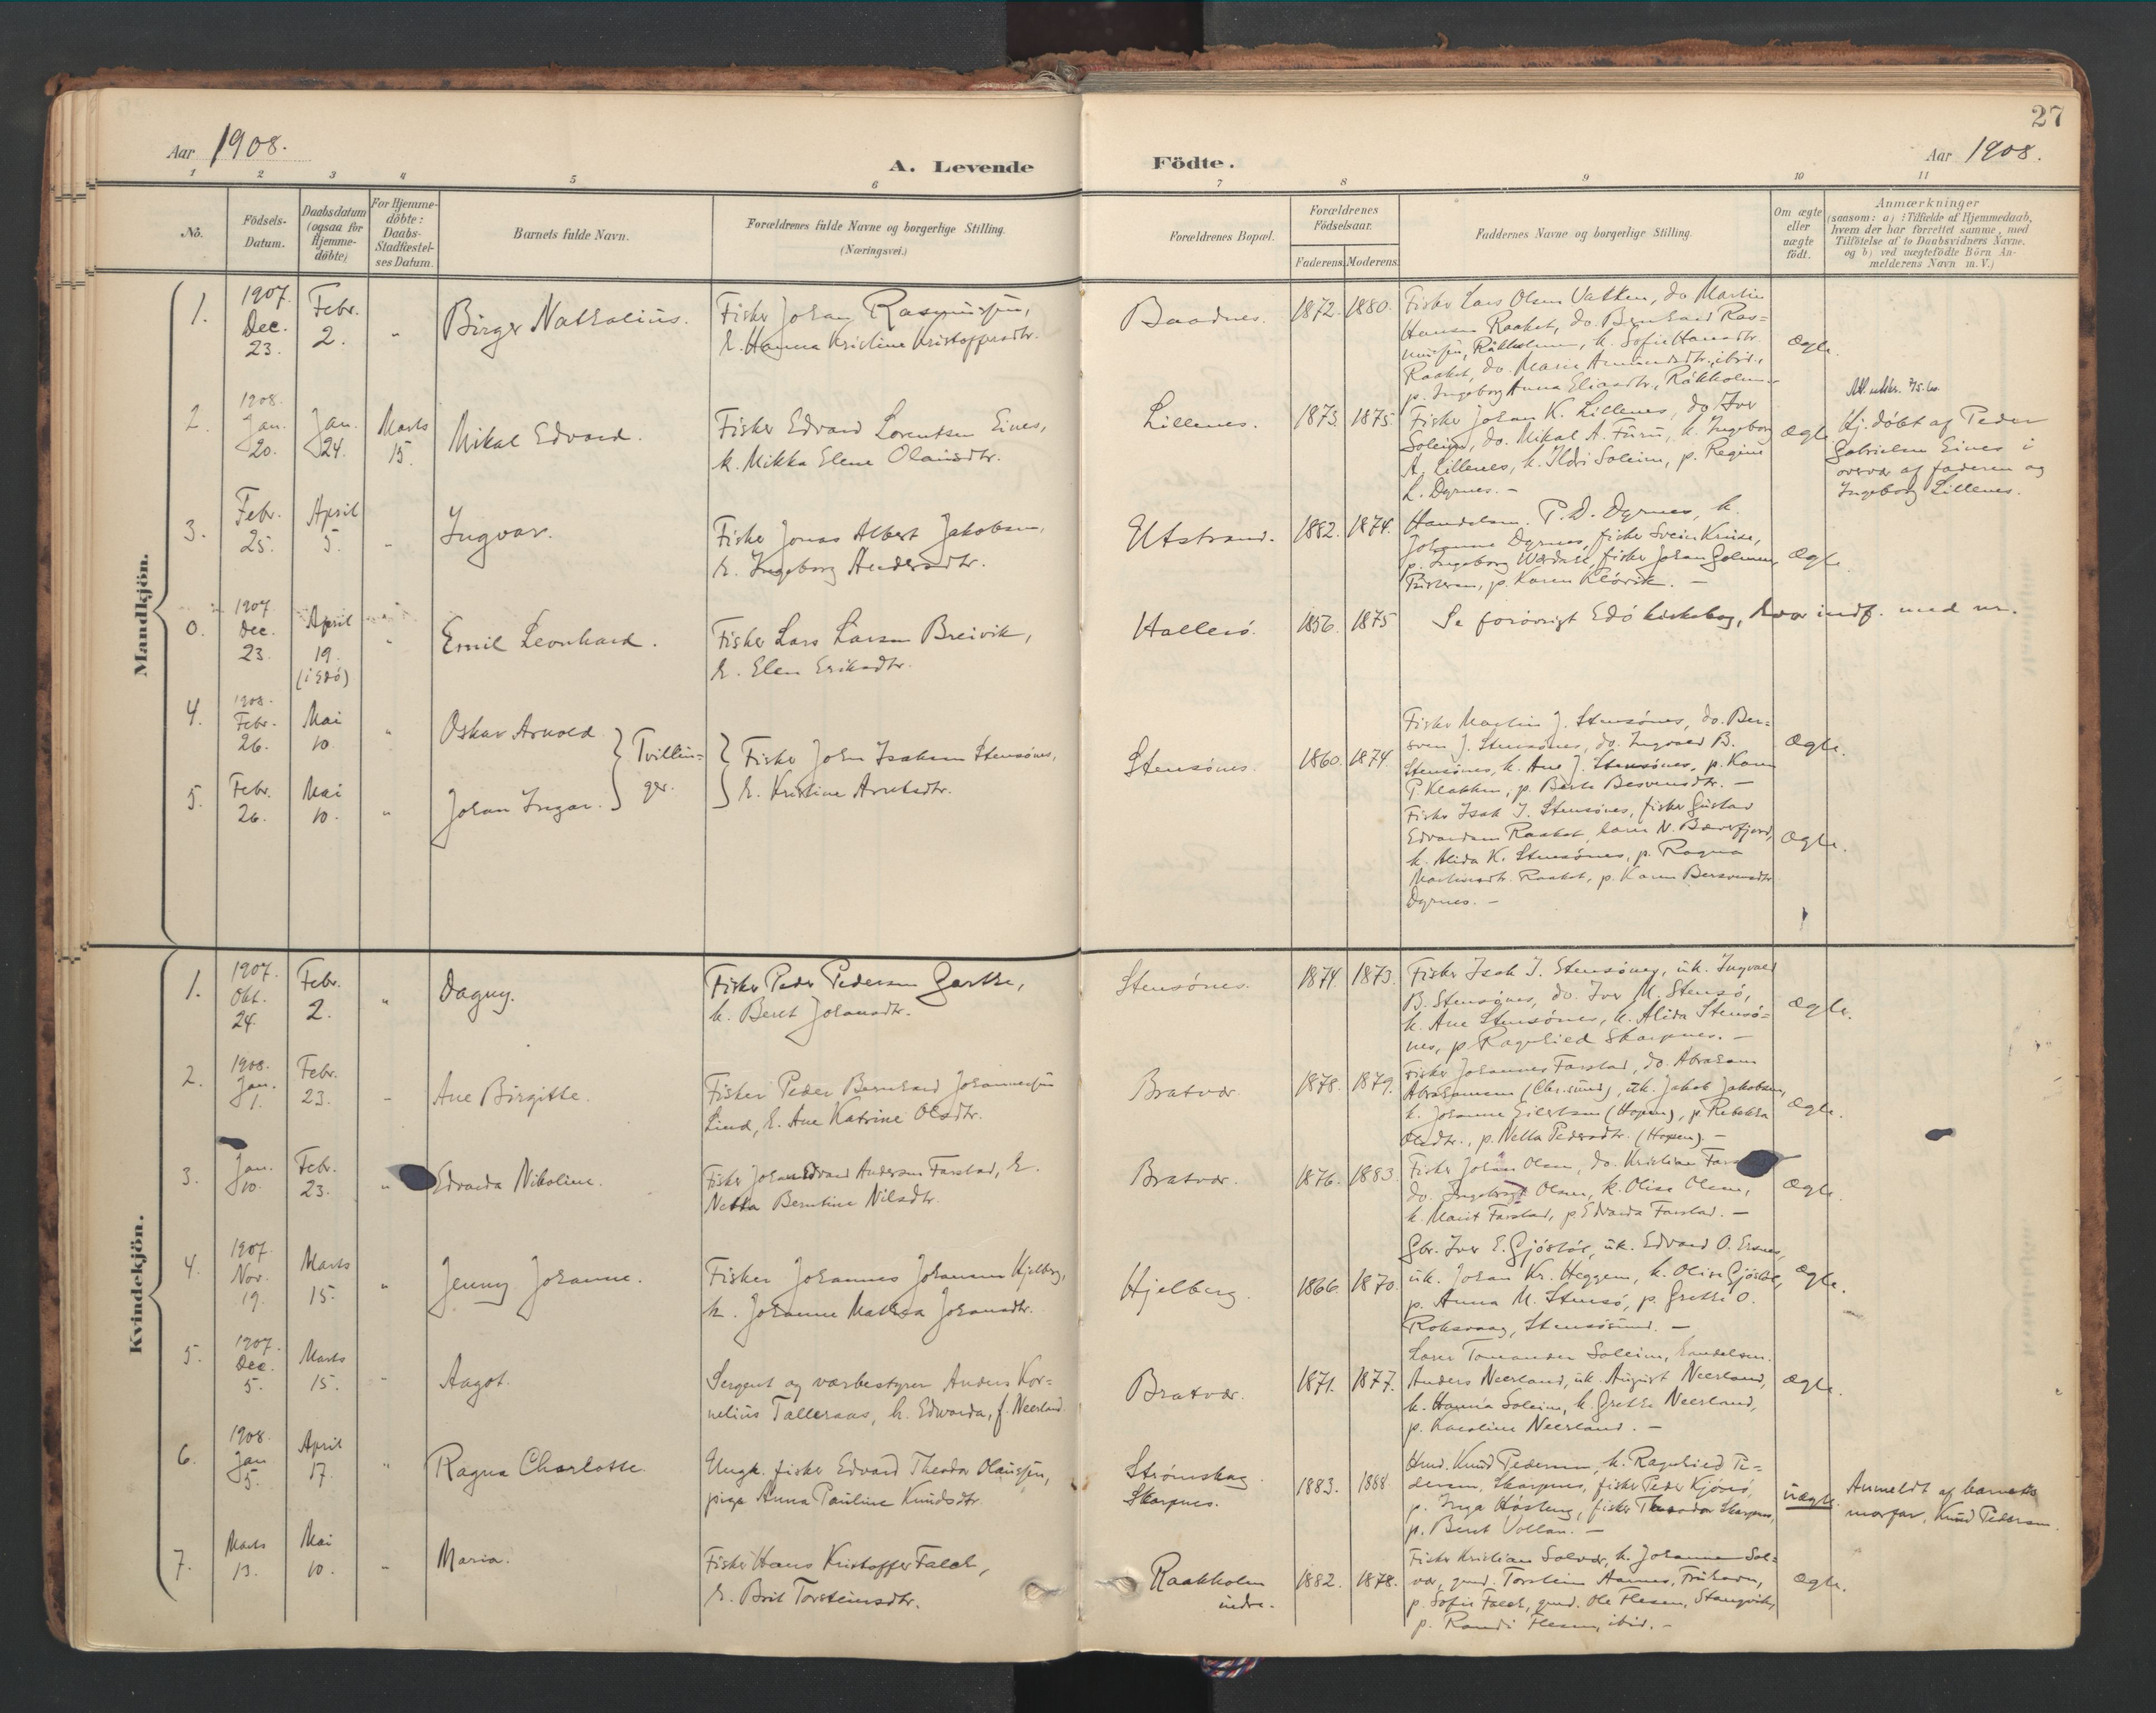 27
Aar 1908.
A. Levende Födte.
Aar 1908.
1 2 3 4 5 6 7 8 9 10 11
No.
Födsels-Datum.
Daabsdatum (ogsaa for Hjemme-döbte)
For Hjemme-döbte: Daabs-Stadfæstel-ses Datum.
Barnets fulde Navn.
Forældrenes fulde Navne og borgerlige Stilling.
(Næringsvei.)
Forældrenes Bopæl.
Forældrenes Födselsaar.
Faderens. Moderens.
Faddernes Navne og borgerlige Stilling.
Om ægte eller uægte födt.
Anmærkninger
(saasom: a) i Tilfælde af Hjemmedaab,
hvem der har forrettet samme, med
Tilföielse af to Daabsvidners Navne.
og b) ved uægtefödte Börn An-
melderens Navn m. V.)
Mandkjön.
1. 1907. Dec. 23. Febr. 2. " Birger Nathalius.
Fisker Johan Rasmussen,
k. Hanna Kristine Kristoffersdtr.
Baadnes. 1872. 1880.
Fisker Lars Olsen Vatten, do. Martin
Hansen Raaket, do. Bernhard Ras=
mussen, Råkholmen, k. Sofie Hansdtr.
Raaket, do. Marie Amundsdtr. ibid.,
p. Ingeborg Anna Eliasdtr., Råkholmen
Ægte.
2. 1908. Jan. 20. Jan. 24. Marts 15. Mikal Edvard.
Fisker Edvard Lorentsen Eines,
k. Mikka Elene Olausdtr.
Lillenes. 1873. 1875.
Fisker Johan K. Lillenes, do. Iver
Soleim, do. Mikal A. Furu, k. Ingeborg
A. Lillenes, k. Ildri Soleim, p. Regine
L. Dyrnes. -
Ægte.
Hj. døbt af Peder
Gabrielsen Eines i
overvær af faderen og
Ingeborg Lillenes.
3. Febr. 25. April 5. " Ingvar.
Fisker Jonas Albert Jakobsen,
k. Ingeborg Andersdtr.
Utstrand. 1882. 1874.
Handelsm. P. D. Dyrnes, k.
Johanne Dyrnes, fisker Svein Kruse,
p. Ingeborg Werdahl, fisker Johan Golmen,
p. Karen Kløvik. -
Ægte.
0. 1907 Dec. 23. April 19. (i Edö) " Emil Leonhard.
Fisker Lars Larsen Breivik,
k. Elen Eriksdtr.
Hallersö. 1856. 1875
Se forövrigt Edö kirkebog, hvor indf. med nr.
4. 1908. Febr. 26. Mai 10. " Oskar Arnold
5. Febr. 26. Mai 10. " Johan Ingar.
Tvillin=
ger.
Fisker John Isaksen Stensönes,
k. Kristine Arntsdtr.
Stensönes. 1860. 1874.
Fisker Martin J. Stensönes, do. Ber=
sven J. Stensönes, do. Ingvald B.
Stensönes, k. Ane J. Stensönes, p. Karen
P. Klakken, p. Berte Bersvensdtr. -
Ægte.
Fisker Isak I. Stensönes, fisker Gustav
Edvardsen Raaket, lærer N. Bæverfjord,
k. Alida K. Stensönes, p. Ragna
Martinsdtr. Raaket, p. Karen Bersvensdtr.
Dyrnes. -
Ægte.
Kvindekjön.
1. 1907. Okt. 24. Febr. 2. " Dagny.
Fisker Peder Pedersen Garthe,
k. Beret Johansdtr.
Stensönes. 1874. 1873.
Fisker Isak I. Stensönes, uk. Ingvald
B. Stensönes, do. Iver M. Stensö,
k. Ane Stensönes, k. Alida Stensö=
nes, p. Ragnhild Skarpnes. -
Ægte.
2. 1908. Jan. 1. Febr. 23. " Ane Birgitte.
Fisker Peder Bernhard Johannessen
Lund, k. Ane Katrine Olsdtr.
Bratvær. 1878. 1879.
Fisker Johannes Farstad, do. Abraham
Abrahamsen (Chr.sund), uk. Jakob Jakobsen,
k. Johanne Eilertsen (Hopen), p. Rebekka
Olsdtr., p. Netta Pedersdtr. (Hopen). -
Ægte.
3. Jan. 10. Febr. 23. " Edvarda Nikoline.
Fisker Johan Edvard Andersen Farstad, k.
Netta Berntine Nilsdtr.
Bratvær. 1876. 1883.
Fisker Johan Olsen, do. Kristian
do. Ingebrigt Olsen, k. Olise Olsen,
k. Marit Farstad, p. Edvarda Farstad. -
Ægte.
4. 1907. Nov. 19. Marts 15. " Jenny Johanne.
Fisker Johannes Johansen Hjelberg,
k. Johanne Mathea Johansdtr.
Hjelberg. 1866. 1870.
Gbr. Iver E. Gjöstöl, uk. Edvard O. Ersnes,
uk. Johan Kr. Heggem, k. Olise Gjöstöl,
p. Anna M. Stensö, p. Grethe O.
Roksvaag, Stensösund. -
Ægte.
5. 1907. Dec. 5. Marts 15. " Aagot.
Sergent og værbestyrer Anders Kor=
nelius Talleraas, k. Edvarda, f. Neerland.
Bratvær. 1871. 1877.
Lærer Tomander Soleim, handelsm.
Anders Neerland, uk. August Neerland,
k. Hanna Soleim, k. Grethe Neerland,
p. Karoline Neerland. -
Ægte.
6. 1908. Jan. 5. April 17. " Ragna Charlotte.
Ungk. fisker Edvard Theodor Olaussen,
pige Anna Pauline Knudsdtr.
Strömskag
Skarpnes. 1883. 1888.
Hmd. Knud Pedersen, k. Ragnhild Pe=
dersen, Skarpnes, fisker Peder Kjönö,
p. Inga Höstung, fisker Theodor Skarpnes,
p. Beret Vollan. -
uægte.
Anmeldt af barnets
morfar, Knud Pedersen.
7. Marts 13. Mai 10. " Maria.
Fisker Hans Kristoffer Falch,
k. Brit Torsteinsdtr.
Raakholm
indre. 1882. 1878.
Fisker Kristian Solvær, k. Johanna Sol=
vær, gmd. Torstein Aanes,
p. Sofie Falch, gmd. Ole Flesen, Stangvik,
p. Randi Flesen, ibid. -
Ægte.